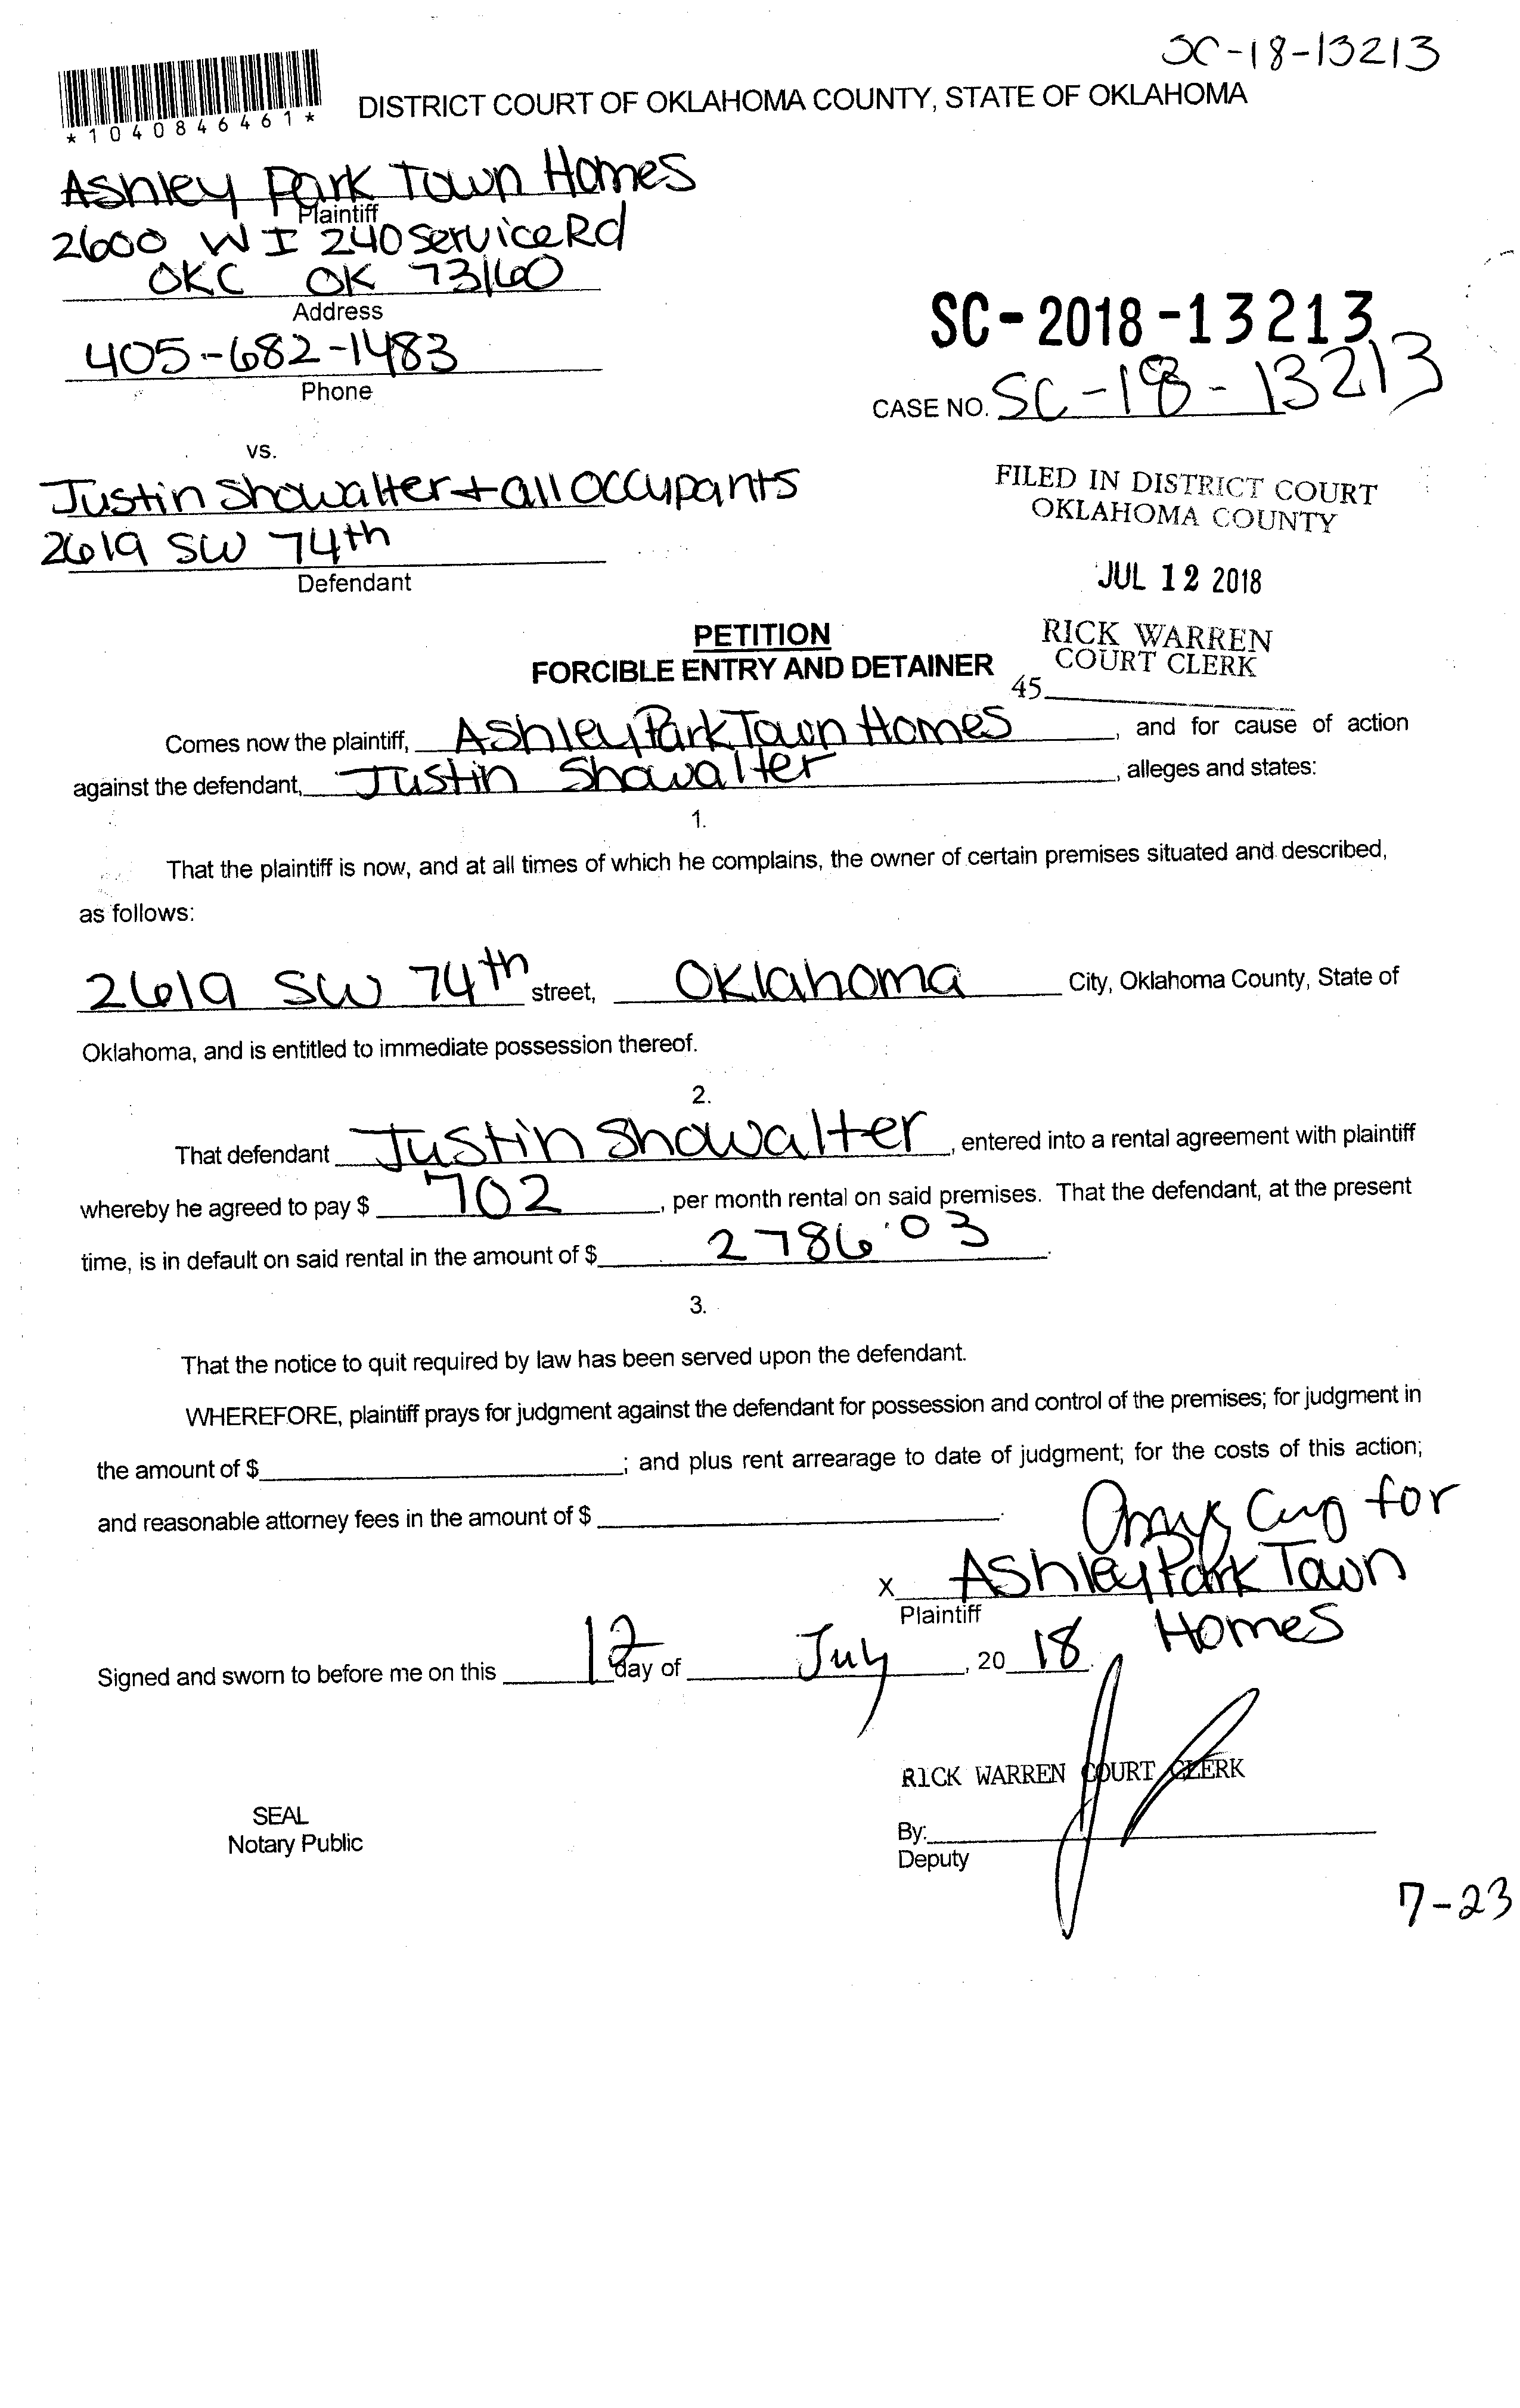 SC-18-13213
*1040846461*
DISTRICT COURT OF OKLAHOMA COUNTY, STATE OF OKLAHOMA
Ashley Park Town Homes
Plaintiff
2600 W I 240 Service Rd
OKC OK 73160
Address
405-682-1483
Phone
SC-2018-13213
CASE NO. SC-18-13213
vs.
Justin Showalter + all occupants
2619 SW 74th
Defendant
FILED IN DISTRICT COURT
OKLAHOMA COUNTY
JUL 12 2018
RICK WARREN
COURT CLERK
45
PETITION
FORCIBLE ENTRY AND DETAINER
Comes now the plaintiff, Ashley Park Town Homes, and for cause of action
against the defendant, Justin Showalter, alleges and states:
1.
That the plaintiff is now, and at all times of which he complains, the owner of certain premises situated and described,
as follows:
2619 SW 74th street, Oklahoma City, Oklahoma County, State of
Oklahoma, and is entitled to immediate possession thereof.
2.
That defendant Justin Showalter, entered into a rental agreement with plaintiff
whereby he agreed to pay $ 702, per month rental on said premises. That the defendant, at the present
time, is in default on said rental in the amount of $ 2786.03.
3.
That the notice to quit required by law has been served upon the defendant.
WHEREFORE, plaintiff prays for judgment against the defendant for possession and control of the premises; for judgment in
the amount of $; and plus rent arrearage to date of judgment; for the costs of this action;
and reasonable attorney fees in the amount of $.
for
x Ashley Park Town
Plaintiff Homes
Signed and sworn to before me on this 12 day of July, 20 18.
RICK WARREN COURT CLERK
SEAL
Notary Public
By:
Deputy
7-23